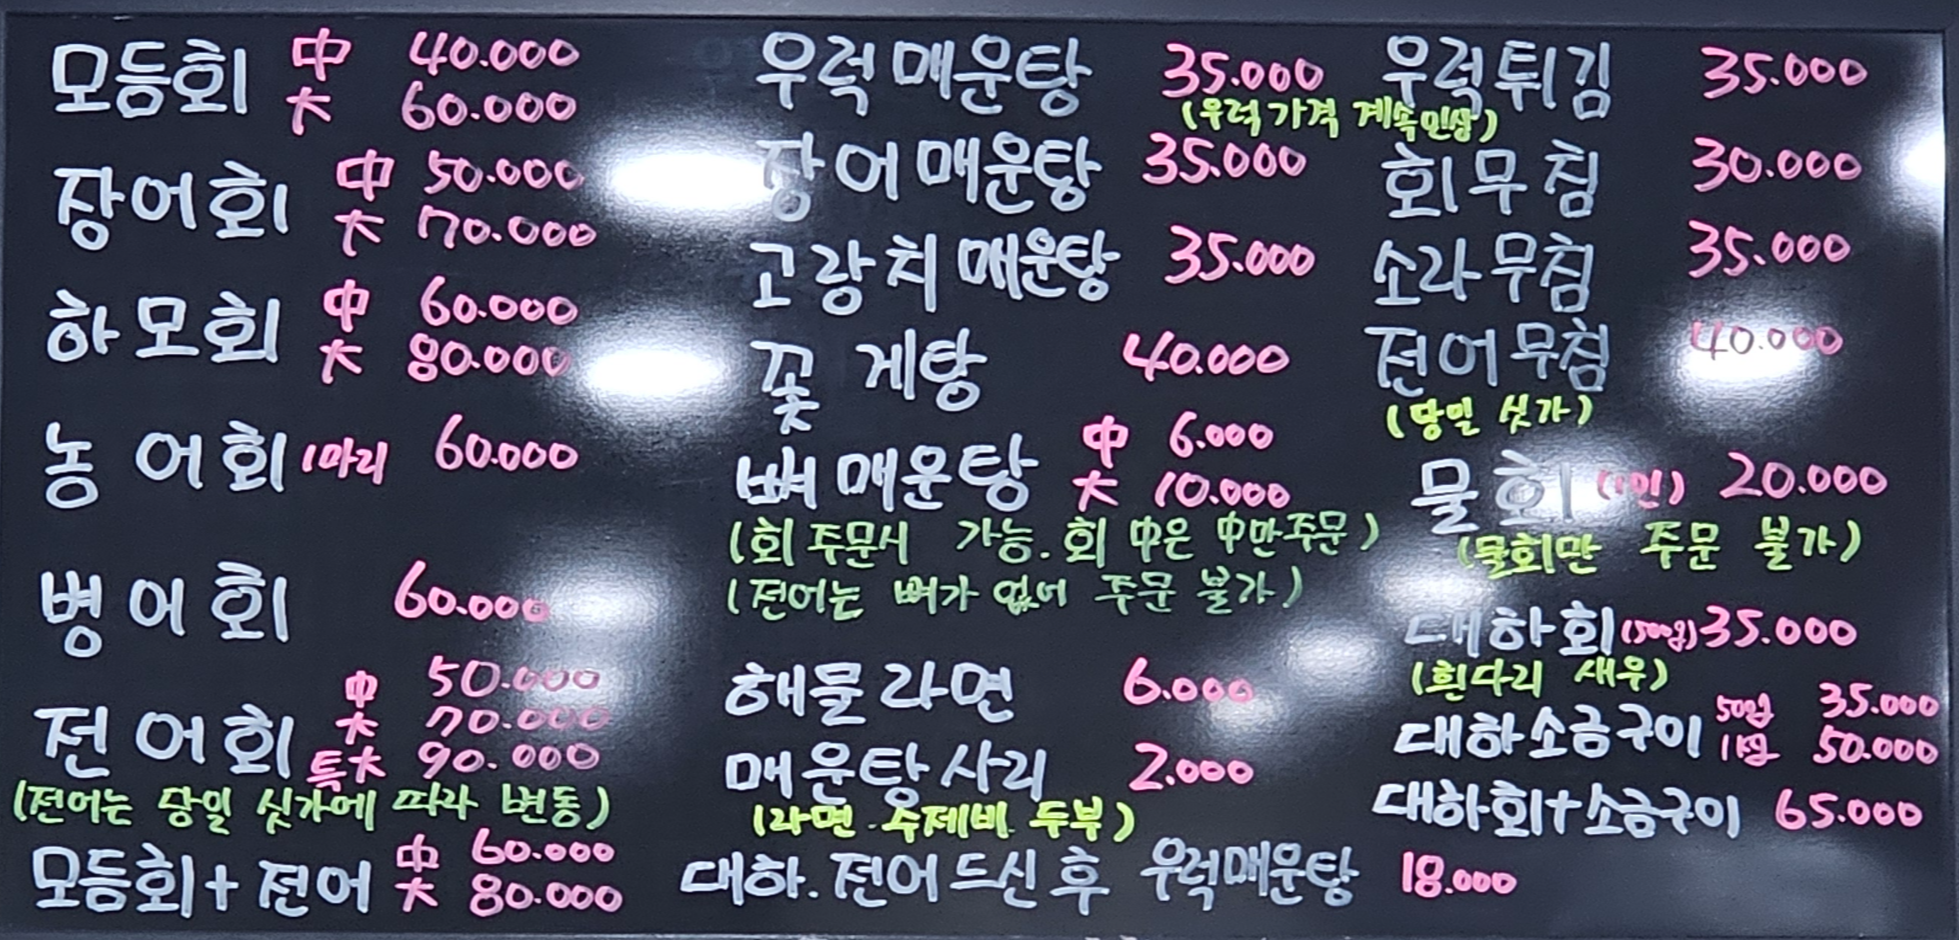 모듬회 中 40.000
大 60.000
장어회 中 50.000
大 70.000
하모회 中 60.000
大 80.000
농어회 1마리 60.000
병어회 60.000
전어회 中 50.000
大 70.000
특大 90.000
(전어는 당일 싯가에 따라 변동)
모듬회+전어 中 60.000
大 80.000
우럭매운탕 35.000
(우럭가격 계속인상)
장어매운탕 35.000
고랑치매운탕 35.000
꽃게탕 40.000
뼈매운탕 中 6.000
大 10.000
(회 주문시 가능. 회 中은 中만주문)
(전어는 뼈가 없어 주문 불가)
해물라면 6.000
매운탕사리 2.000
(라면. 수제비. 두부)
대하.전어드신후 우럭매운탕 18.000
우럭튀김 35.000
회무침 30.000
소라무침 35.000
전어무침 40.000
(당일 싯가)
물회 (1인) 20.000
(물회만 주문 불가)
대하회(500g) 35.000
(흰다리 새우)
대하소금구이 500g 35.000
1kg 50.000
대하회+소금구이 65.000